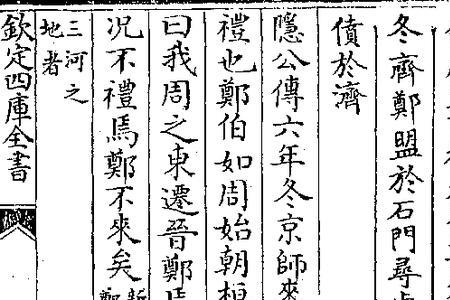 冬齊鄭盟於石門尋
僨於濟
隱公傳六年冬京師來
禮也鄭伯如周始朝桓
曰我周之東遷晉鄭焉
况不禮焉鄭不來矣
三河之
地者
欽定四庫全書